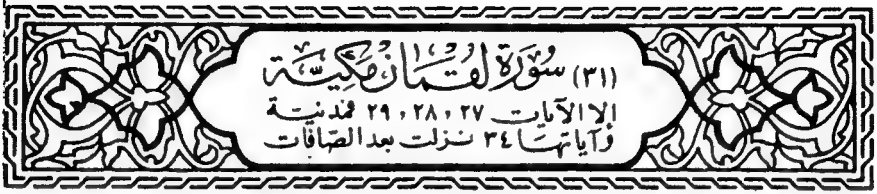 (٣١) سُورَة لقمَان مكيَّة
إلا الآيات ٢٧ ، ٢٨ ، ٢٩ فمدنية
وآياتها ٣٤ نزلت بعد الصافات